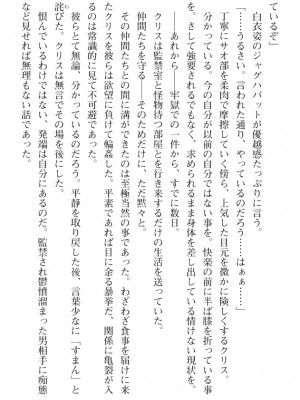 ているぞ」
　白衣姿のジャグハバットが優越感たっぷりに言う。
「……うるさい。言われた通り、やっているのだろう……はぁぁ……」
　丁寧にサオ部を柔肉で摩擦していく傍ら、上気した目元を微かに険しくするクリス。
　分かっている。今の自分が以前の自分ではない事を。快楽の前に半ば膝を折っている事を。そして強要されるでもなく、求められるまま身体を差し出している情けない現状を。
　――あれから――牢獄での一件から、すでに数日。
　クリスは監禁室と怪物待つ部屋とを行き来するだけの生活を送っていた。
　仲間たちを守る――そのためだけに、ただ黙々と。
　その仲間たちとの間に溝ができたのは至極当然の事であった。わざわざ食事を届けに来たクリスを彼らは欲望に負けて輪姦した。平素であれば目に余る暴挙だ、関係に亀裂が入るのは常識的に見て不可避であった。
　彼らとて無論、分かっているのだろう。平静を取り戻した後、言葉少なに「すまん」と詫びた。クリスは無言でその場を後にした。
　恨んでいるわけではない、発端は自分にあるのだ。監禁され鬱憤溜まった男相手に痴態など見せれば無理もない話であった。